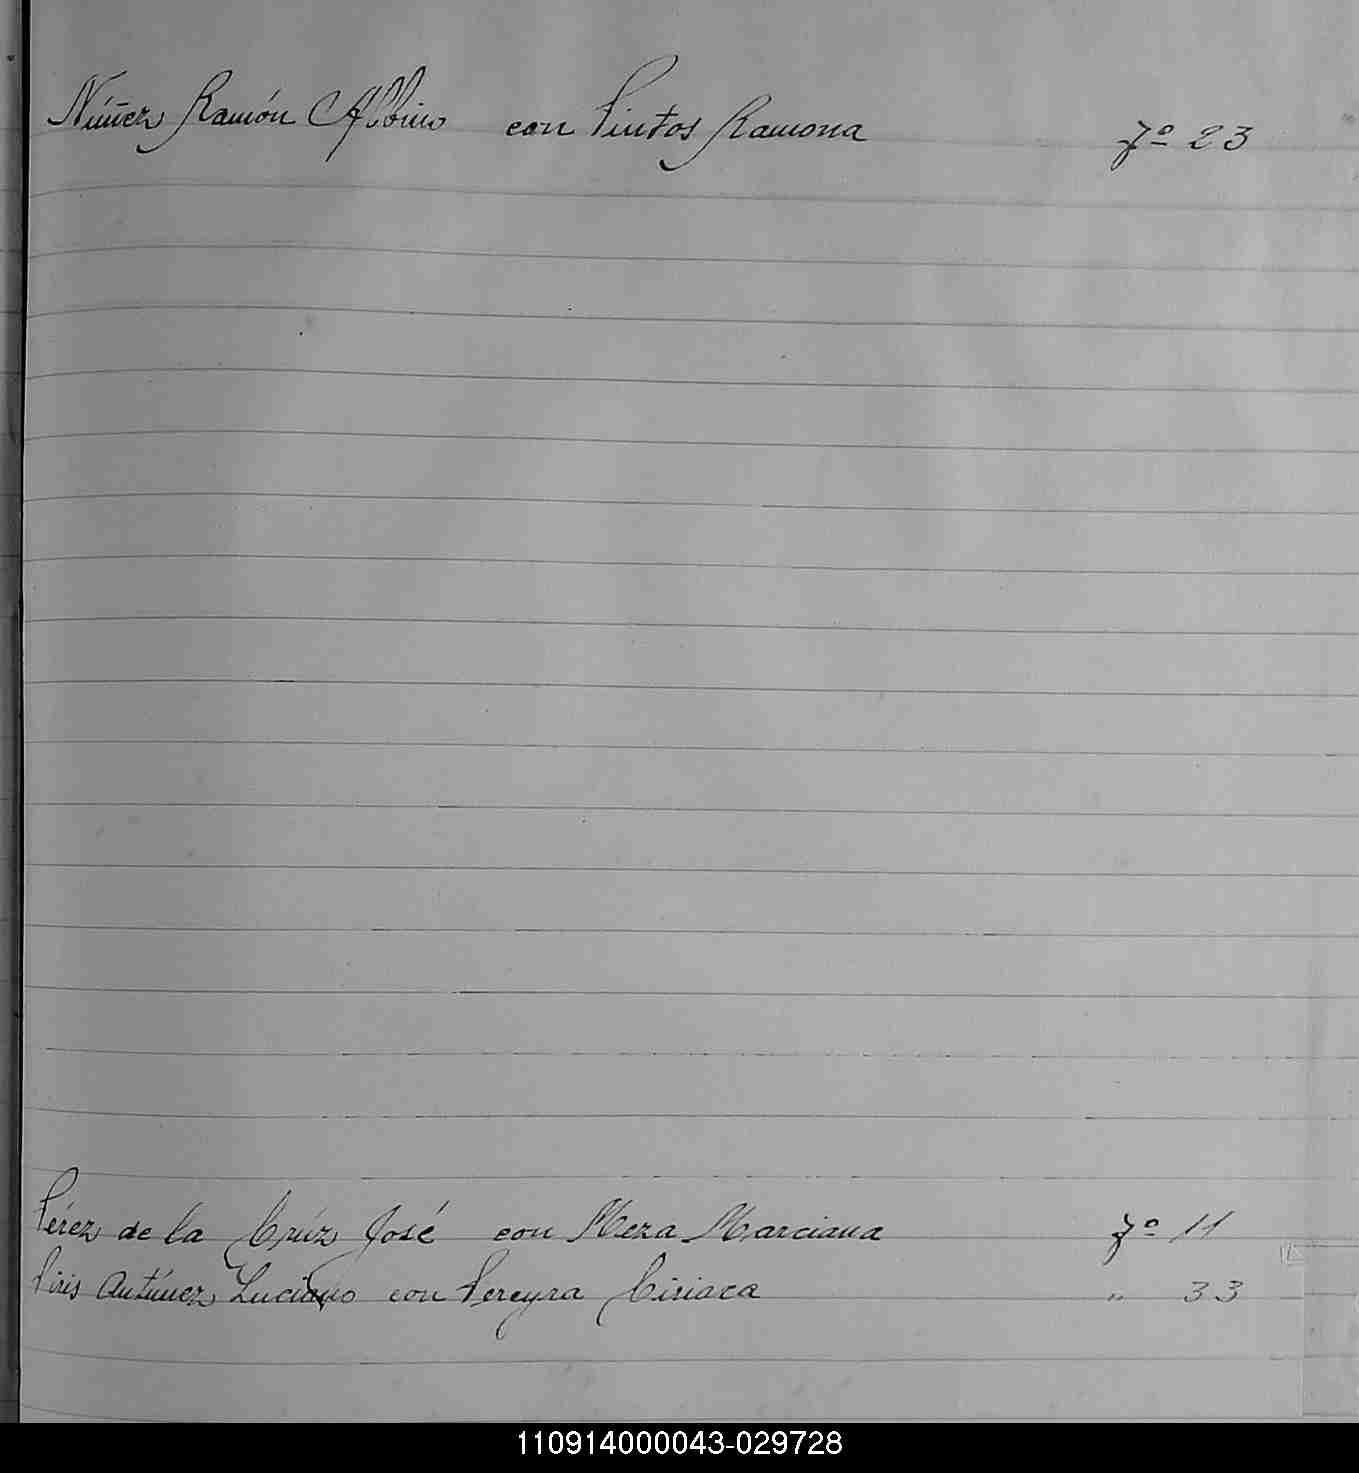 Núñez Ramón Albino con Pintos Ramona fº 23
Pérez de la Crúz José con Meza Marciana fº 11
Piris Antúnez Luciano con Pereyra Ciriaca " 33
110914000043-029728